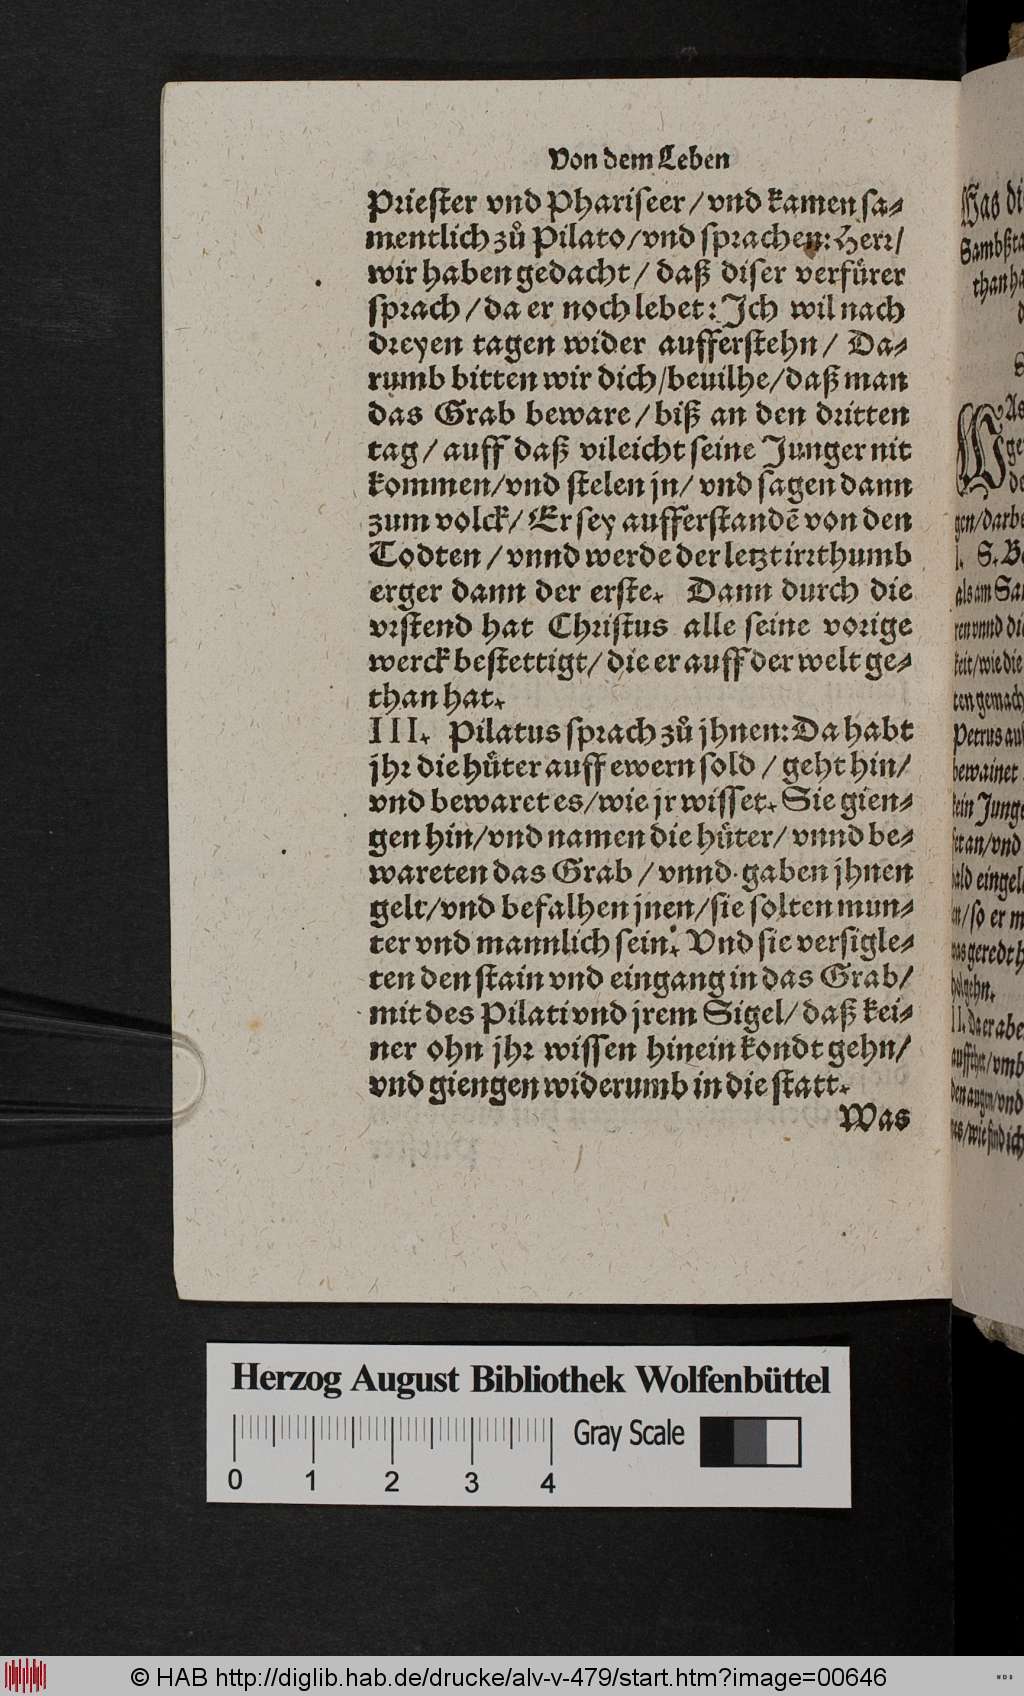 Von dem Leben
Priester vnd Phariseer / vnd kamen sa⸗
mentlich zů Pilato / vnd sprachen: Herr /
wir haben gedacht / daß diser verfürer
sprach / da er noch lebet: Ich wil nach
dreyen tagen wider aufferstehn / Da⸗
rumb bitten wir dich / beuilhe / daß man
das Grab beware / biß an den dritten
tag / auff daß vileicht seine Junger nit
kommen / vnd stelen jn / vnd sagen dann
zum volck / Er sey aufferstandē von den
Todten / vnnd werde der letzt irrthumb
erger dann der erste. Dann durch die
vrstend hat Christus alle seine vorige
werck bestettigt / die er auff der welt ge⸗
than hat.
III. Pilatus sprach zů jhnen: Da habt
jhr die hüter auff ewern sold / geht hin /
vnd bewaret es / wie jr wisset. Sie gien⸗
gen hin / vnd namen die hüter / vnnd be⸗
wareten das Grab / vnnd gaben jhnen
gelt / vnd befalhen jnen / sie solten mun⸗
ter vnd mannlich sein. Vnd sie versigle⸗
ten den stain vnd eingang in das Grab /
mit des Pilati vnd jrem Sigel / daß kei⸗
ner ohn jhr wissen hinein kondt gehn /
vnd giengen widerumb in die statt.
Was
Was di
Sambßta
than ha
As
ge
de
gen / darbe
I. S. Be
als am Sa
ren vnnd die
keit / wie die
ten gemach
Petrus au
bewainet
sein Junge
an / vnd
bald eingel
/ so er m
geredt h
gehn.
II. Da er abe
/ vmb
den augen / vnd
/ wie sind ich
Herzog August Bibliothek Wolfenbüttel
Gray Scale
0 1 2 3 4
© HAB http://diglib.hab.de/drucke/alv-v-479/start.htm?image=00646